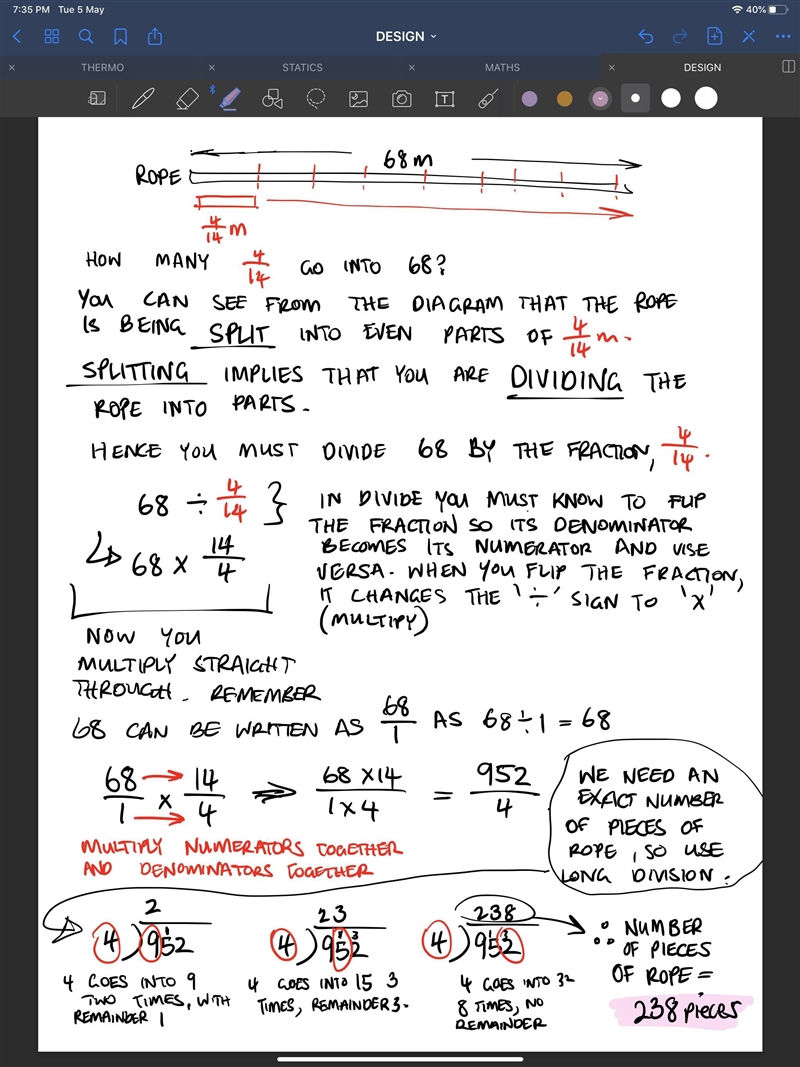 7:35 PM Tue 5 May
40%
DESIGN
THERMO
STATICS
MATHS
DESIGN
T
68 m
ROPE
4/14 m
HOW MANY 4/14 GO INTO 68?
YOU CAN SEE FROM THE DIAGRAM THAT THE ROPE
IS BEING SPLIT INTO EVEN PARTS OF 4/14 m.
SPLITTING IMPLIES THAT YOU ARE DIVIDING THE
ROPE INTO PARTS.
HENCE YOU MUST DIVIDE 68 BY THE FRACTION, 4/14.
68 ÷ 4/14 }
68 x 14/4
IN DIVIDE YOU MUST KNOW TO FLIP
THE FRACTION SO ITS DENOMINATOR
BECOMES ITS NUMERATOR AND VISE
VERSA. WHEN YOU FLIP THE FRACTION,
IT CHANGES THE '÷' SIGN TO 'X'
(MULTIPLY)
NOW YOU
MULTIPLY STRAIGHT
THROUGH. REMEMBER
68 CAN BE WRITTEN AS 68/1 AS 68÷1=68
68/1 x 14/4 ⇒ 68x14/1x4 = 952/4
MULTIPLY NUMERATORS TOGETHER
AND DENOMINATORS TOGETHER
WE NEED AN
EXACT NUMBER
OF PIECES OF
ROPE, SO USE
LONG DIVISION.
2
4)9¹52
4 GOES INTO 9
TWO TIMES, WITH
REMAINDER 1
23
4)9¹5³2
4 GOES INTO 15 3
TIMES, REMAINDER 3.
238
4)9¹5³2
4 GOES INTO 32
8 TIMES, NO
REMAINDER
∴ NUMBER
OF PIECES
OF ROPE =
238 pieces